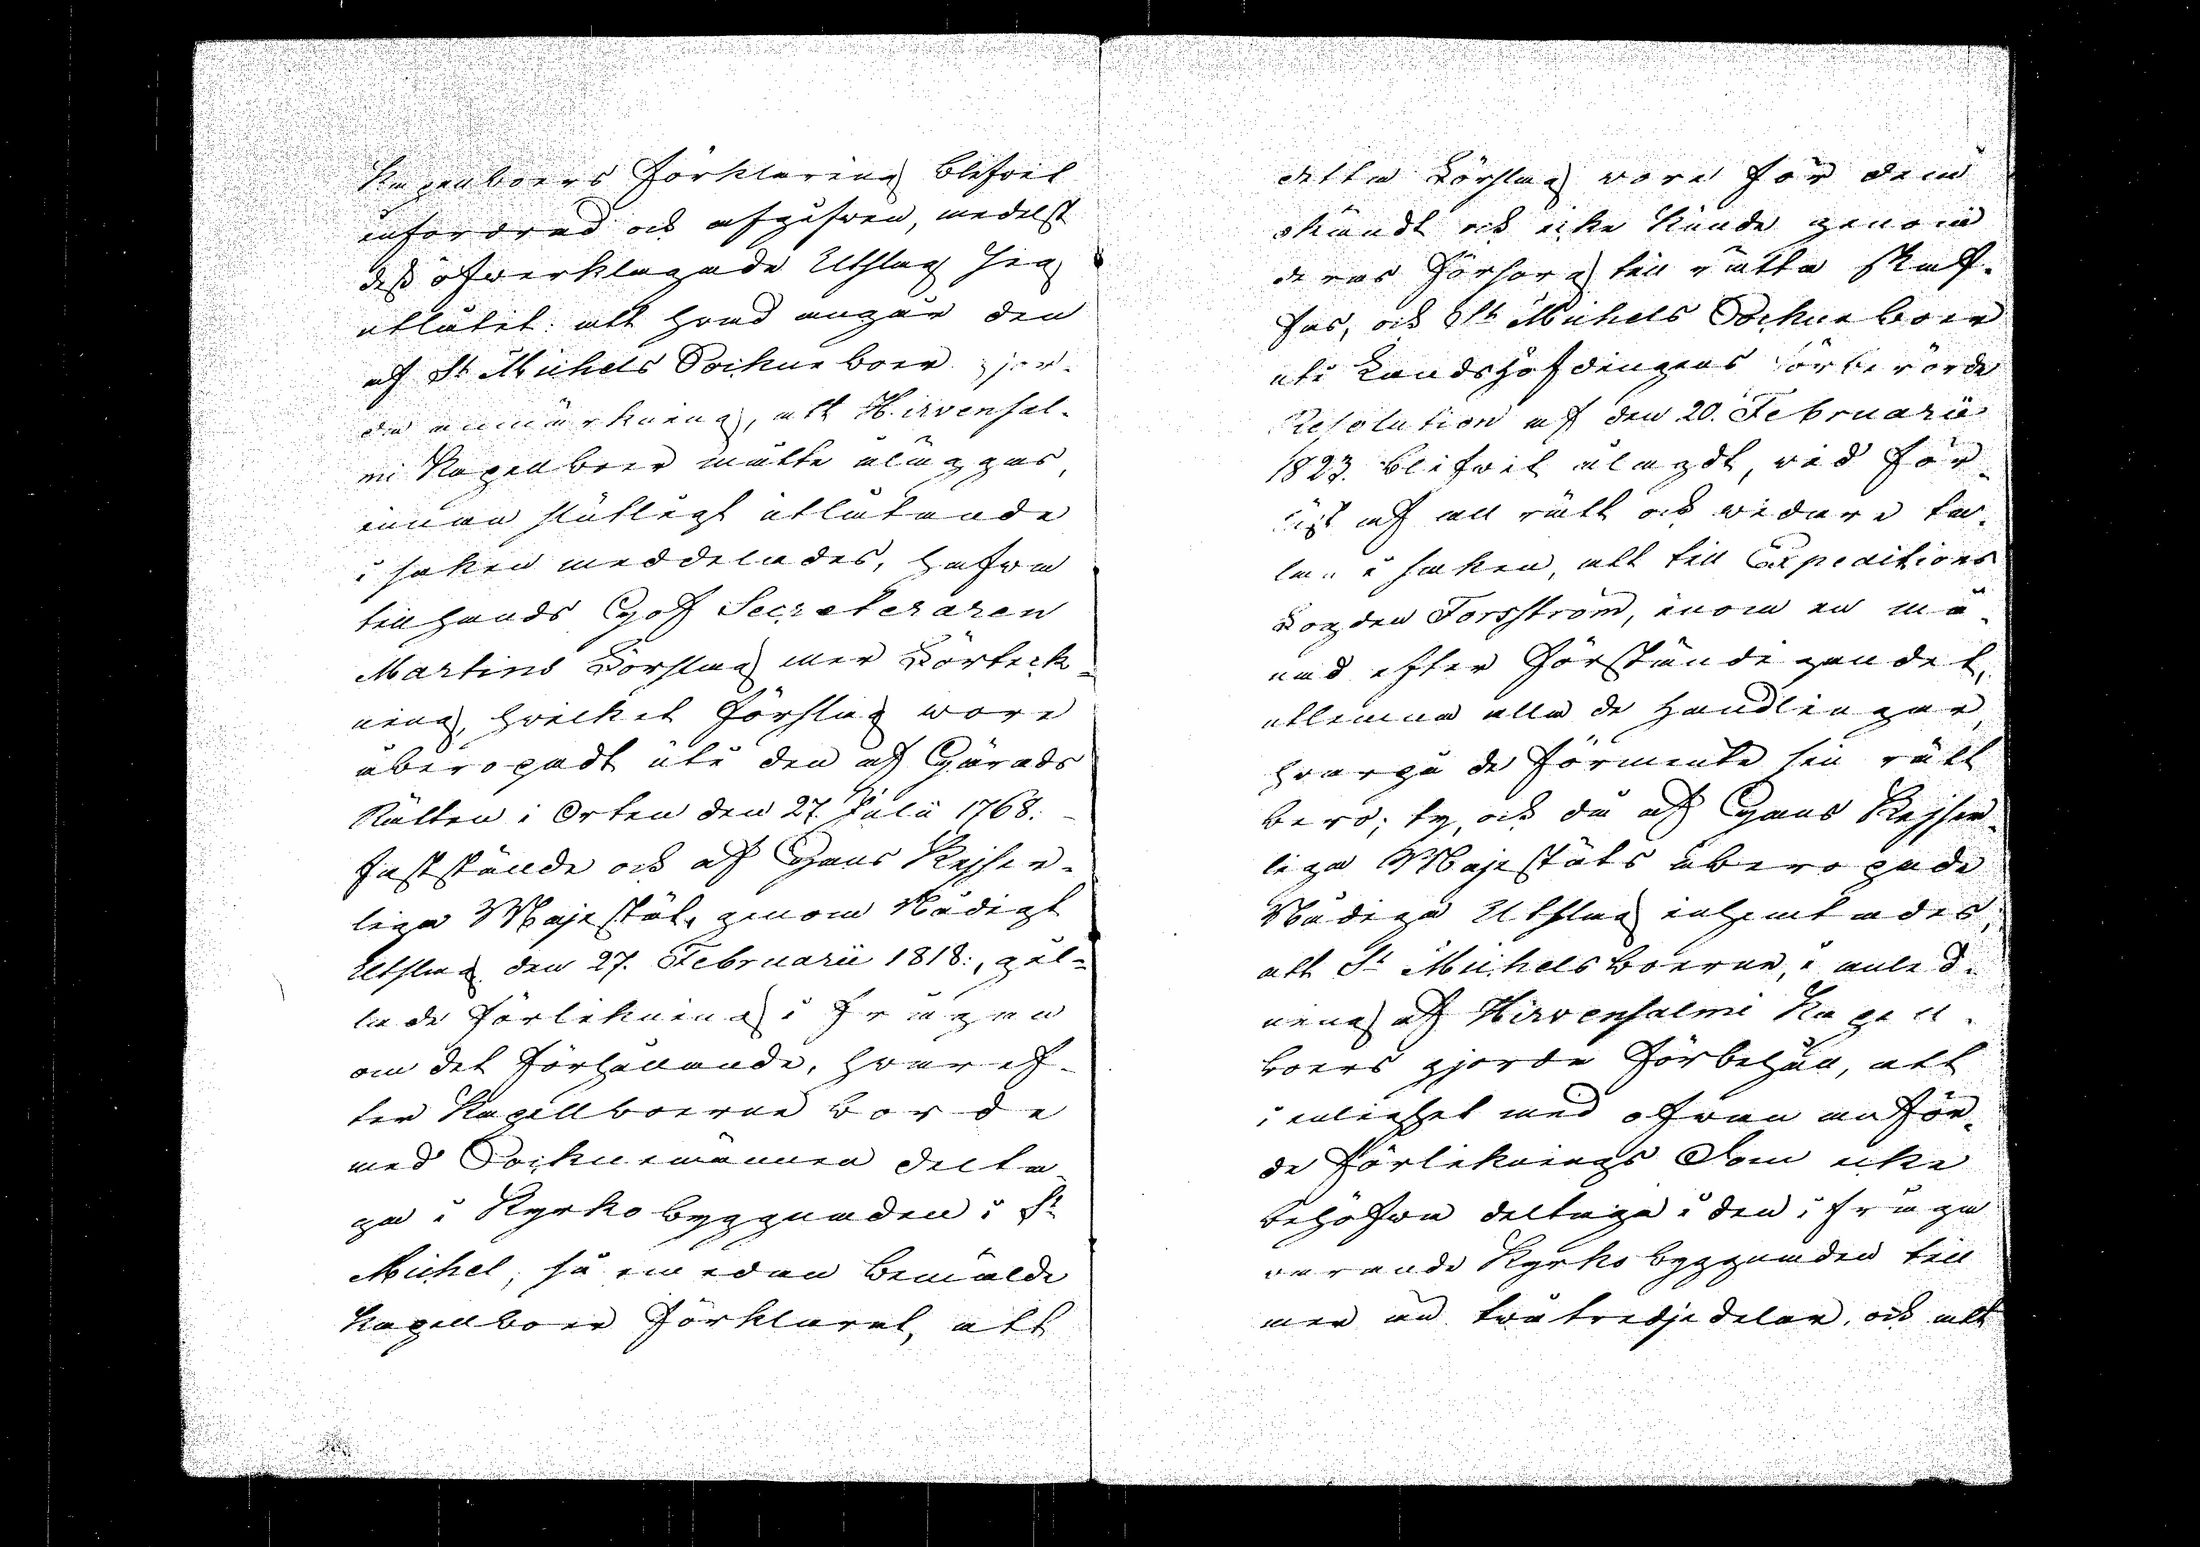 Kapellboers förklaring blifvit
infordrad och afgifven, medelst
dess öfverklagade Utslag sig
utlåtit: att hvad angår den
af St Michels Sockneboer gjor-
da anmärkning, att Hirvensal-
mi Kapellboer måtte åläggas,
innan slutligt utlåtande
i saken meddelades, hafva
tillhands Hof Secreteraren
Martins Förslag mer Förteck-
ning, hvilket förslag vore
åberopadt uti den af Härads
Rätten i Orten den 27. Julii 1768.
fastställde och af Hans Kejser-
liga Majestät, genom Nådigt
Utslag den 27. Februarii 1818:, gil-
lade förlikning i frågan
om det förhållande, hvaref-
ter Kapellboerne borde
med Socknemännen delta-
ga i Kyrkobyggnaden i St
Michel; så emedan bemälde
Kapellboer förklarat, att
detta Förslag vore för dem
okändt och icke kunde genom
deras försorg till rätta skaf-
fas, och St Michels Sockneboer
uti Landshöfdingens förberörde
Resolution af den 20. Februarii
1823. blifvit ålagdt, vid för-
lust af all rätt och vidare ta-
lan i saken, att till Expeditions
Fogden Forsström, inom en må-
nad efter förständigandet,
utlemna alla de handlingar,
hvarpå de förmente sin rätt
bero; ty, och då af Hans Kejser-
liga Majestäts åberopade
Nådiga Utslag inhemtades,
att St Michelsboerne, i anled-
ning af Hirvensalmi Kapell-
boers gjorde förbehåll, att
i enlighet med ofvan anför-
de förliknings Dom icke
behöfva deltaga i den i fråga
varande Kyrkobyggnaden till
mer än två tredjedelar, och att